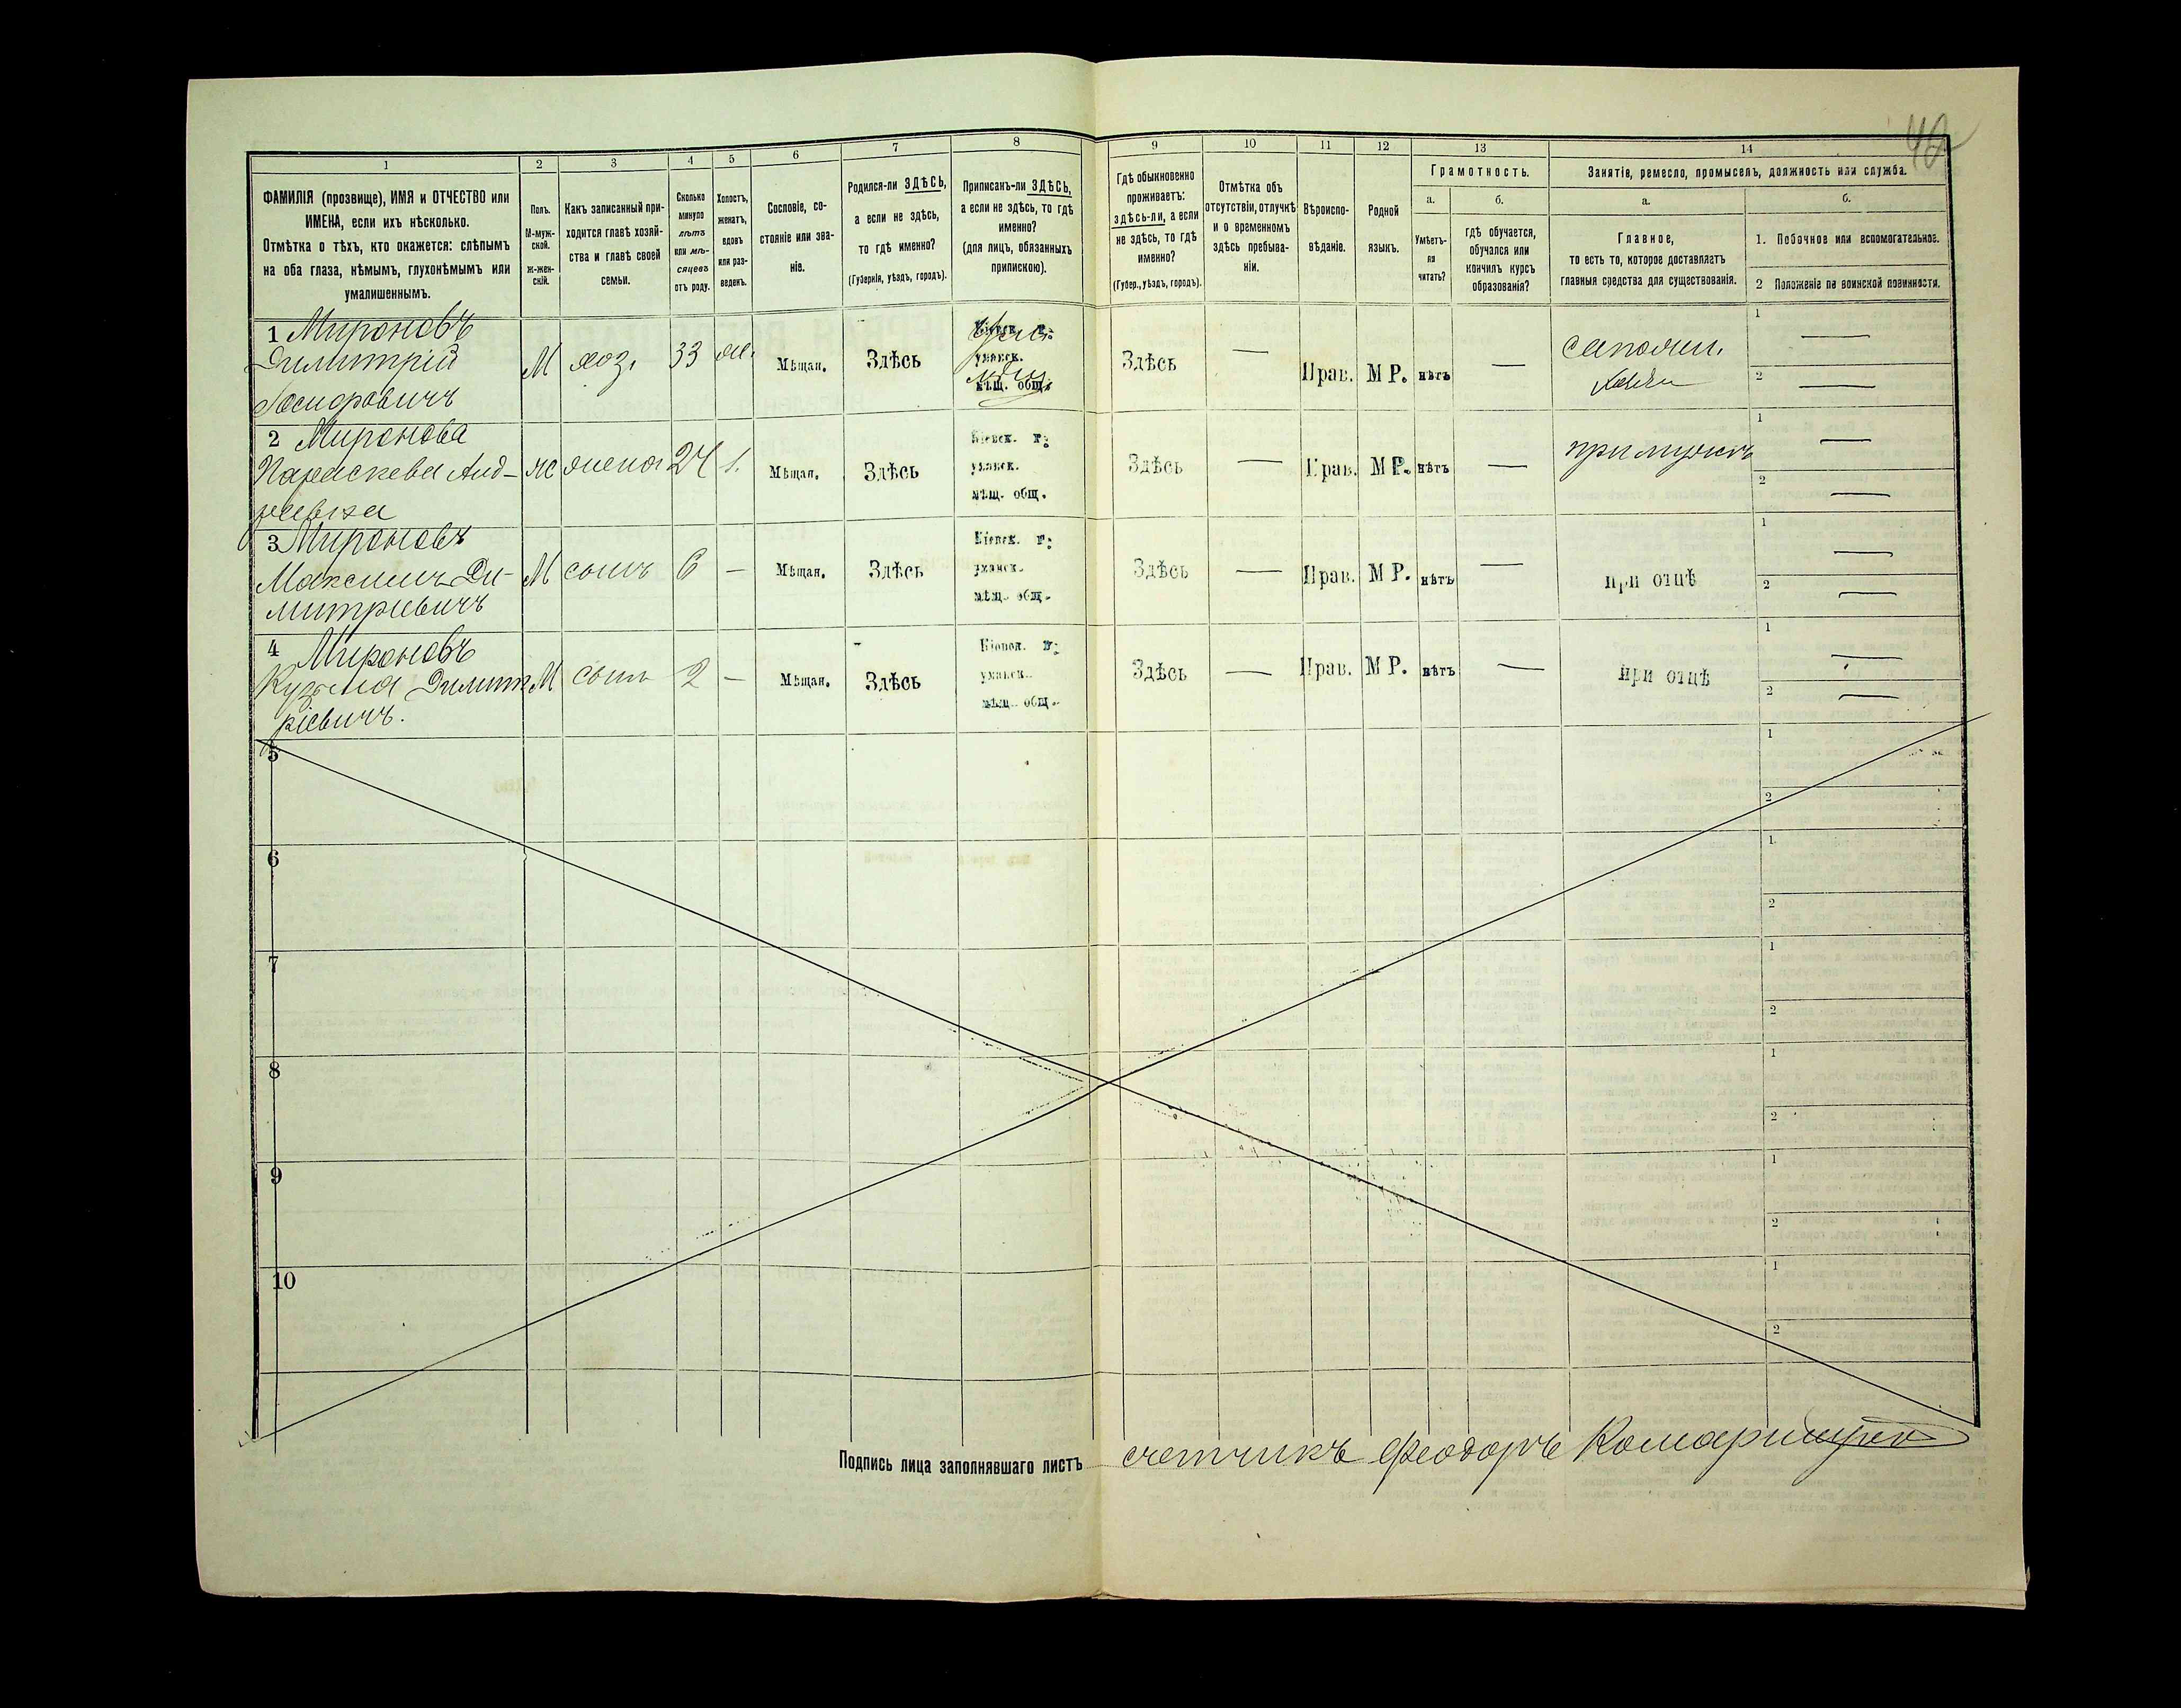 42
1 2 3 4 5 6 7 8 9 10 11 12 13 14
ФАМИЛІЯ (прозвище), ИМЯ и ОТЧЕСТВО или
ИМЕНА, если ихъ нѣсколько.
Отмѣтка о тѣхъ, кто окажется: слѣпымъ
на оба глаза, нѣмымъ, глухонѣмымъ или
умалишеннымъ.
Полъ.
М-муж-
ской.
ж-жен-
скій.
Какъ записанный при-
ходится главѣ хозяй-
ства и главѣ своей
семьи.
Сколько
минуло
лѣтъ
или мѣ-
сяцевъ
отъ роду.
Холостъ,
женатъ,
вдовъ
или раз-
веденъ.
Сословіе, со-
стояніе или зва-
ніе.
Родился-ли ЗДѢСЬ,
а если не здѣсь,
то гдѣ именно?
(Губернія, уѣздъ, городъ).
Приписанъ-ли ЗДѢСЬ,
а если не здѣсь, то гдѣ
именно?
(для лицъ, обязанныхъ
припискою).
Гдѣ обыкновенно
проживаетъ:
здѣсь-ли, а если
не здѣсь, то гдѣ
именно?
(Губер., уѣздъ, городъ).
Отмѣтка объ
отсутствіи, отлучкѣ
и о временномъ
здѣсь пребыва-
ніи.
Вѣроиспо-
вѣданіе.
Родной
языкъ.
Грамотность.
а.
Умѣетъ-
ли
читать?
б.
гдѣ обучается,
обучался или
кончилъ курсъ
образованія?
Занятіе, ремесло, промыселъ, должность или служба.
а.
Главное,
то есть то, которое доставляетъ
главныя средства для существованія.
б.
1. Побочное или вспомогательное.
2 Положеніе по воинской повинности.
1 Мироновъ
Димитрій
М хоз. 33 Мѣщан. Здѣсь
Кіевск. г.
уманск.
мѣщ. общ.
Здѣсь — Прав. М Р. нѣтъ —
1 —
2 —
2 Миронова
Параскева Анд-
реевна
ж жена 24 Мѣщан. Здѣсь
Кіевск. г.
уманск.
мѣщ. общ.
Здѣсь — Прав. М Р. нѣтъ — при мужѣ
1 —
2 —
3 Мироновъ
Максимъ Ди-
митріевичъ
М сынъ 6 — Мѣщан. Здѣсь
Кіевск. г.
уманск.
мѣщ. общ.
Здѣсь — Прав. М Р. нѣтъ — при отцѣ
1 —
2 —
4 Мироновъ
Кузьма Димит
ріевичъ.
М сынъ 2 — Мѣщан. Здѣсь
Кіевск. г.
уманск.
мѣщ. общ.
Здѣсь — Прав. М Р. нѣтъ — при отцѣ
1 —
2 —
5 1
2
6 1.
2
7 1
2
8 1
2
9 1
2
10 1
2
Подпись лица заполнявшаго листъ счетчикъ Феодоръ